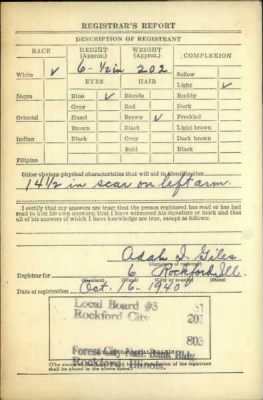 REGISTRAR'S REPORT
DESCRIPTION OF REGISTRANT
RACE HEIGHT (Approx.) WEIGHT (Approx.) COMPLEXION
White ✓ 6-½in 202 Sallow
EYES HAIR Light ✓
Negro Blue ✓ Blonde Ruddy
Gray Red Dark
Oriental Hazel Brown ✓ Freckled
Brown Black Light brown
Indian Black Gray Dark brown
Bald Black
Filipino
Other obvious physical characteristics that will aid in identification
14½ in scar on left arm.
I certify that my answers are true; that the person registered has read or has had
read to him his own answers; that I have witnessed his signature or mark and that
all of his answers of which I have knowledge are true, except as follows:
Adah I. Giles
(Signature of registrar)
Registrar for 6 Rockford Ill.
(Precinct) (City or county) (State)
Date of registration Oct. 16 1940
Local Board #3 51
Rockford City 201
803
Forest City Natl. Bank Bldg.
Rockford Illinois
(The stamp of the Local Board having jurisdiction of the registrant
shall be placed in the above space.)